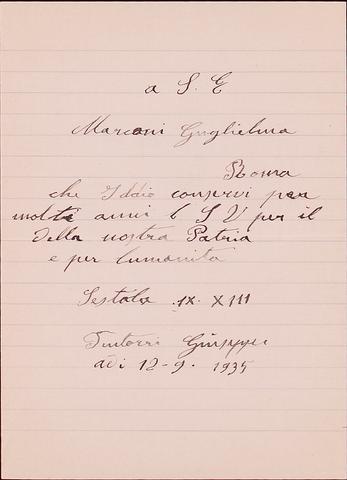 a S. E
Marconi Guglielmo
Roma
che Iddio conservi per
molti anni la S V per il
della nostra Patria
e per lumanità
Sestola .IX. XIII
Giuseppe
adi 12-9. 1935